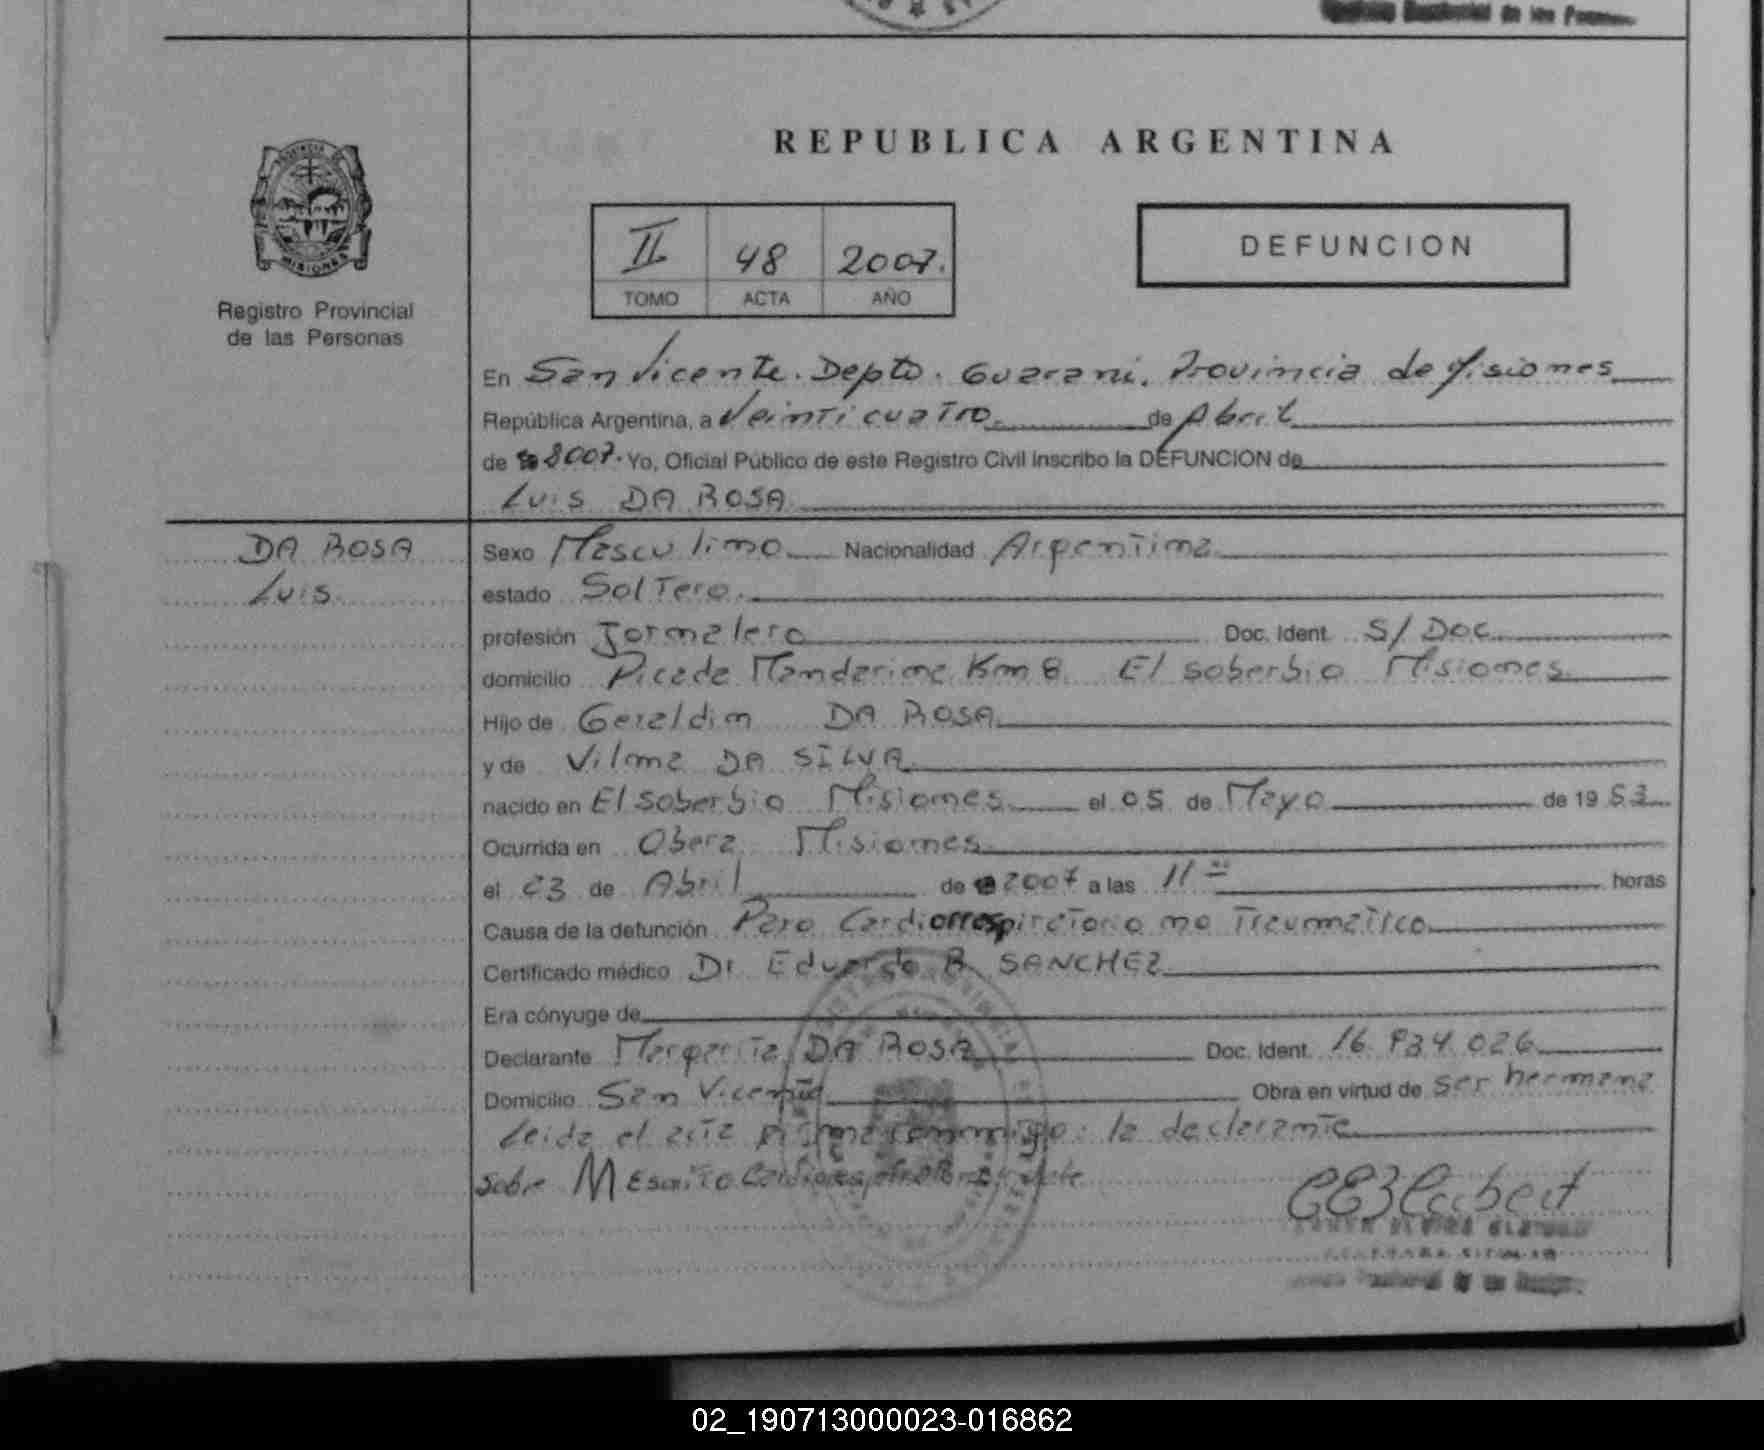 REPUBLICA ARGENTINA
PROVINCIA DE
MISIONES
Registro Provincial
de las Personas
II 48 2007.
TOMO ACTA AÑO
DEFUNCION
En San Vicente. Depto. Guarani. Provincia de Misiones
República Argentina, a Veinticuatro de Abril
de 2007. Yo, Oficial Público de este Registro Civil inscribo la DEFUNCION de
Luis DA ROSA
DA ROSA
Luis
Sexo Masculino Nacionalidad Argentina
estado Soltero.
profesión Jornalero Doc. Ident. S/ Doc
domicilio Picada Mandarina Km 8 El soberbio Misiones
Hijo de Geraldin DA ROSA
y de Vilma DA SILVA
nacido en El soberbio Misiones el 05 de Mayo de 19 53
Ocurrida en Obera Misiones
el 23 de Abril de 2007 a las 11 horas
Causa de la defunción Paro Cardiorrespiratorio no Traumatico
Certificado médico Dr Eduardo R. SANCHEZ
Era cónyuge de
Declarante Margarita DA ROSA Doc. Ident. 16.834.026
Domicilio San Vicente Obra en virtud de ser hermana
Leida el acta firma conmigo: la declarante
Sobre